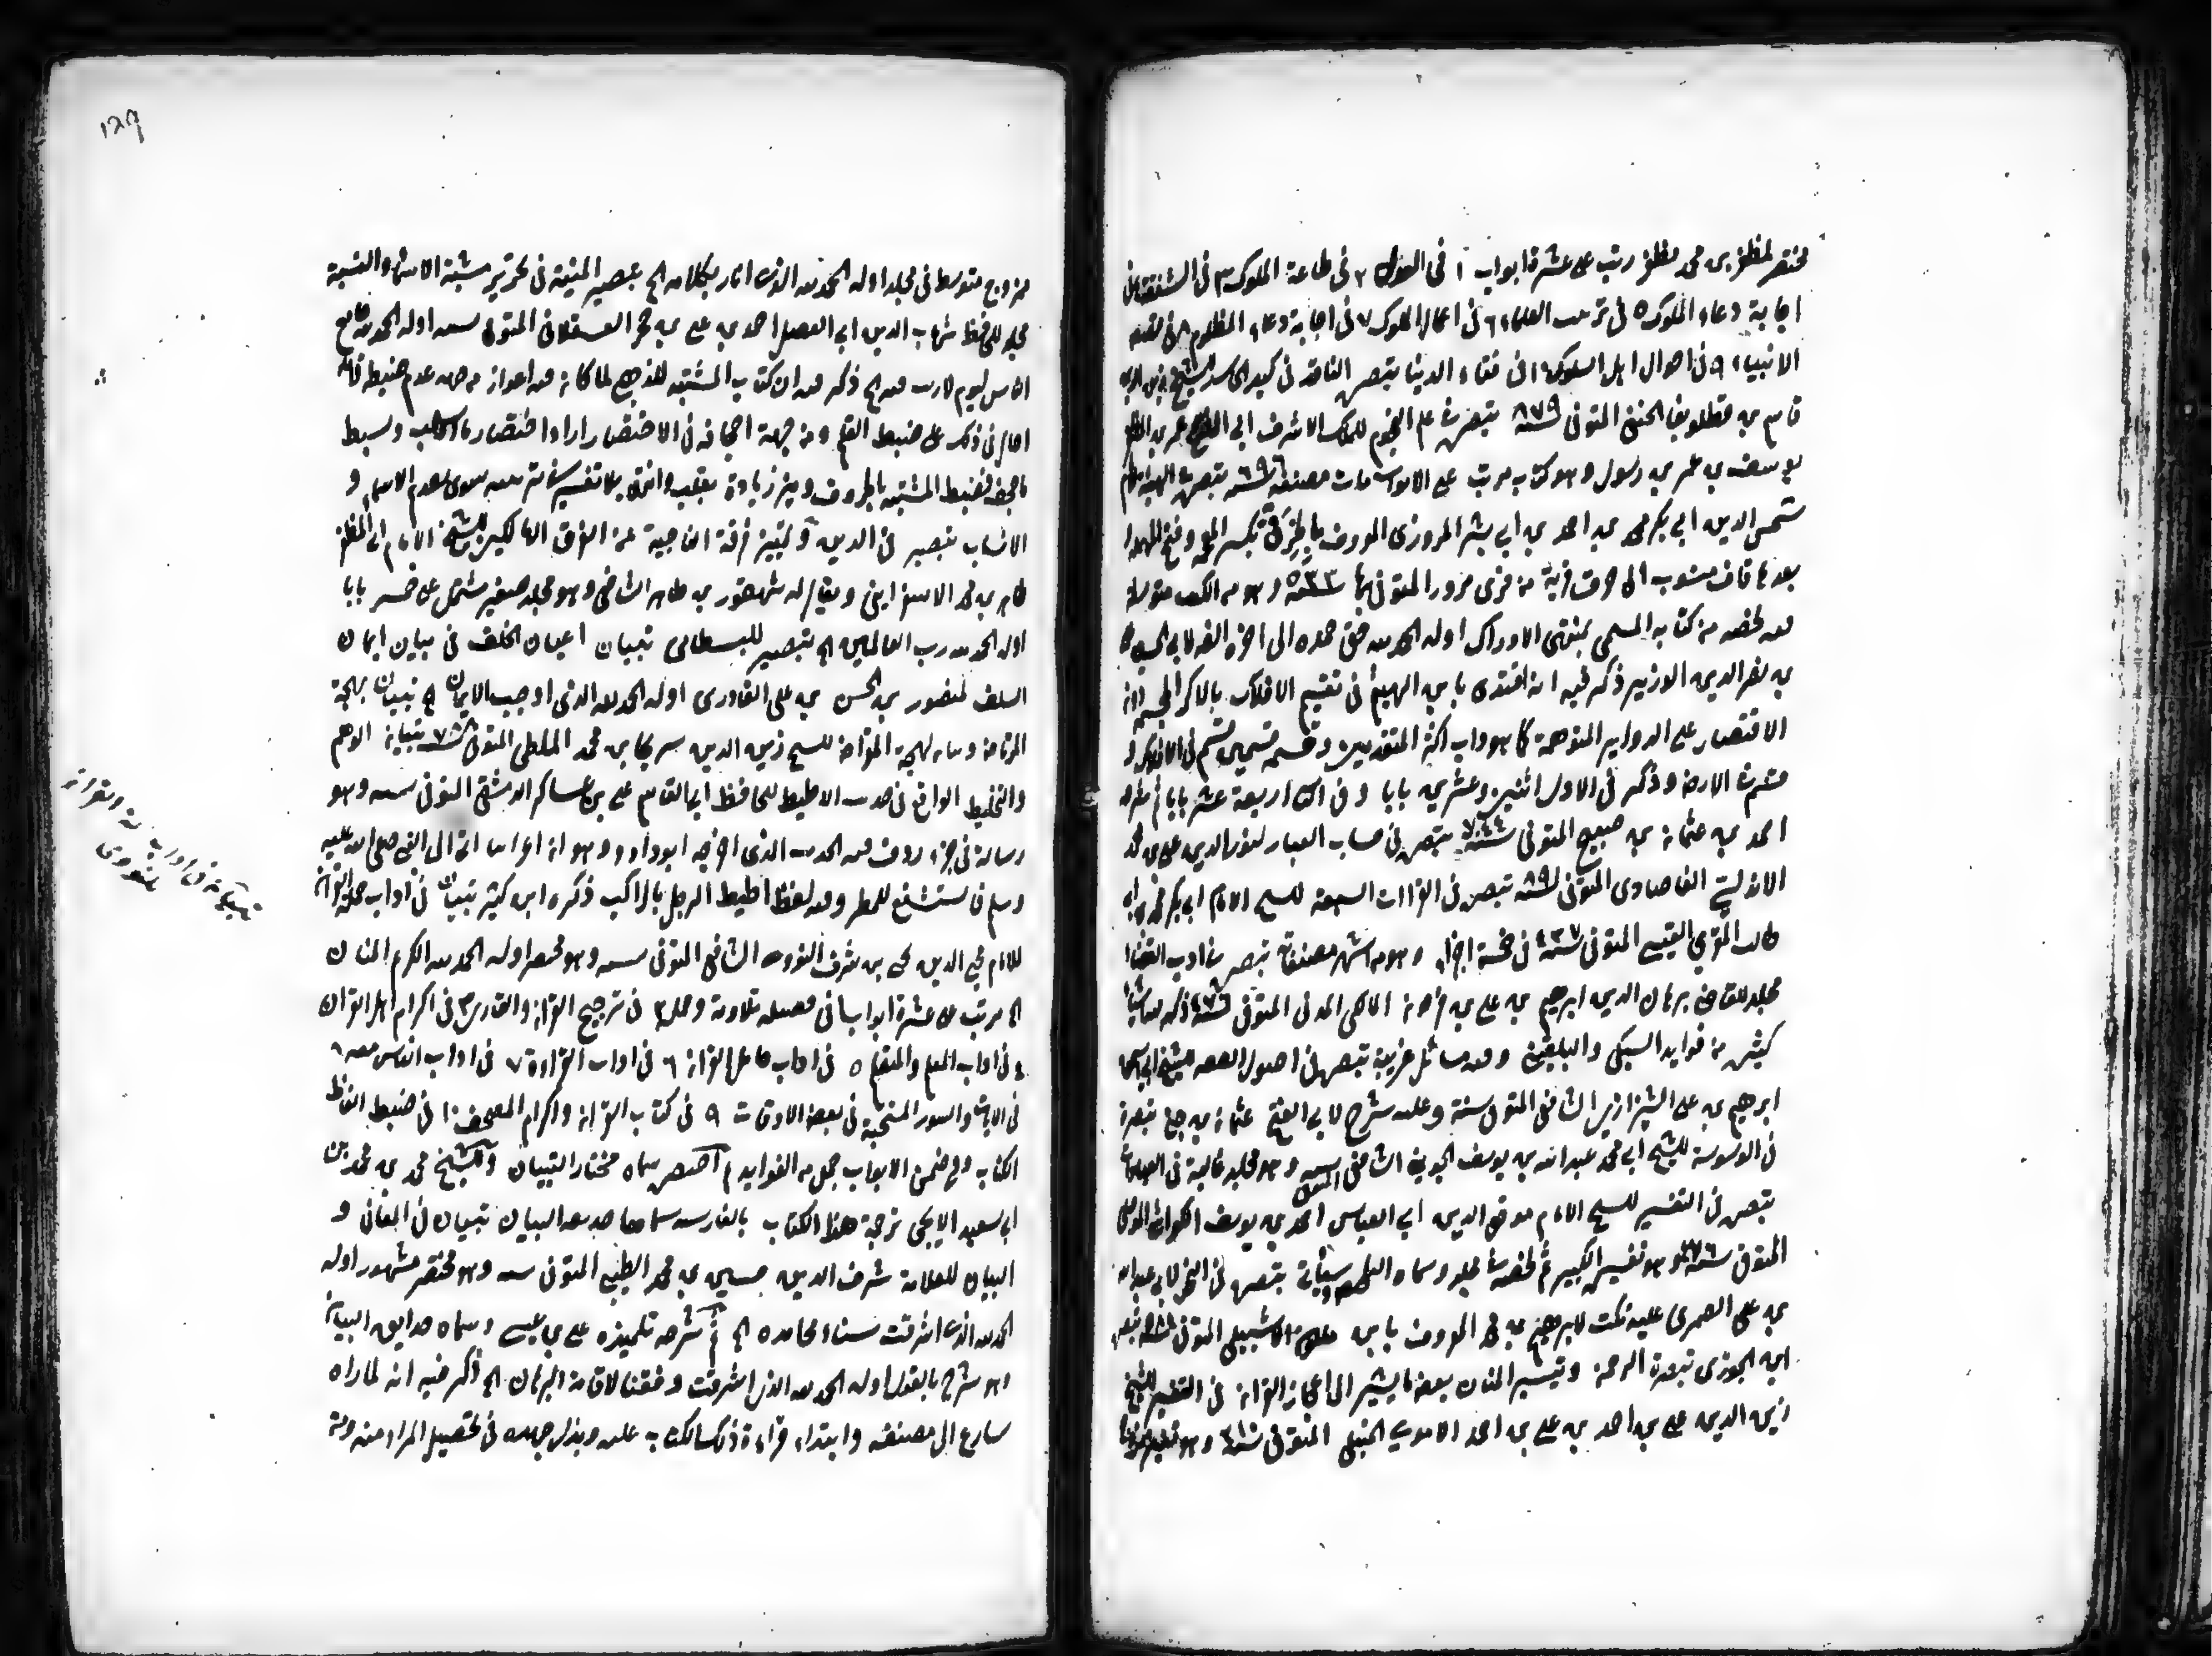 مختصر لمظفر بن محمد مظفر رتب على عشرة ابواب ١ فى العدل ٢ فى طاعة الملوك ٣ فى الشفقة
اجابة دعاء الملوك ٥ فى ترتيب العلماء ٦ فى اعمال الملوك ٧ فى اجابة دعاء المظلوم ٨ فى قصة
الانبياء ٩ فى احوال اهل السلوك ١٠ فى فناء الدنيا تبصرة الناقد فى كيد الحاسد للشيخ زين الدين
قاسم بن قطلوبغا الحنفى المتوفى سنة ٨٧٩ تبصرة فى علم النجوم للملك الاشرف ابى الفتح عمر بن المظفر
يوسف بن عمر بن رسول وهو كتاب مرتب على الابواب مات مصنفه سنة ٦٩٦ تبصرة فى الهيئة للامام
شمس الدين ابى بكر محمد بن احمد بن ابى بشر المروزى المعروف بالخرقى بكسر المعجمة وفتح المهملة
بعدها قاف منسوب الى خرق قرية من قرى مرو المتوفى بها سنة ٥٣٣ وهو من الكتب المتوسطة
فيه لخصه من كتابه المسمى بمنتهى الادراك اوله الحمد لله حق حمده الى اخره الفه لابى الحسين
بن نصر الدين الوزير ذكر فيه انه اقتدى بابن الهيثم فى تقسيم الافلاك بالاكر المجسمة دون
الاقتصار على الدواير المتوهمة كما هو داب اكثر المتقدمين وقسمه قسمين قسم فى الافلاك و
قسم فى الارض وذكر فى الاول اثنين وعشرين بابا وفى الثانى اربعة عشر بابا ثم شرحه
احمد بن عثمان بن صبيح المتوفى سنة ٧٤٤ تبصرة فى حساب الغبار لنور الدين على بن محمد
الاندلسى القلصادى المتوفى سنة ٨٩١ تبصرة فى القراات السبعة للشيخ الامام ابى محمد مكى بن ابى
طالب المقرى القيسى المتوفى سنة ٤٣٧ فى خمسة اجزاء وهو من اشهر مصنفاته تبصرة فى ادب القضاء
مجلد للقاضى برهان الدين ابرهيم بن على بن فرحون المالكى المدنى المتوفى سنة ٧٩٩ ذكر فيه شيئا
كثيرا من فوايد السبكى والبلقينى وفيه مسائل غريبة تبصرة فى اصول الفقه للشيخ ابى اسحاق
ابرهيم بن على الشيرازى الشافعى المتوفى سنة وعليه شرح لابى الفتح عثمان بن جنى تبصرة
فى الوسوسة للشيخ ابى محمد عبد الله بن يوسف الجوينى الشافعى المتوفى سنة وهو مجلد غالبه فى العبادات
تبصرة فى التفسير للشيخ الامام موفق الدين ابى العباس احمد بن يوسف الكواشى الموصلى
المتوفى سنة ٦٨٠ وهو تفسيره الكبير ثم لخصه فى مجلد وسماه التلخيص وسيأتى تبصرة فى النحو لابى عبد الله
بن على الصمرى عليه نكت لابرهيم بن محمد المعروف بابن ملكون الاشبيلى المتوفى سنة ٥٨٤ تبصرة
ابن الجوزى تبصرة الرحمن وتيسير المنان ببعض ما يشير الى اعجاز القرآن فى التفسير للشيخ
زين الدين على بن احمد بن على بن احمد الاموى الحنبلى المتوفى سنة وهو تفسير
ممزوج متوسط فى مجلد اوله الحمد لله الذى انار بكلامه الخ تبصير المنتبه فى تحرير مشتبه الاسماء والنسبة
مجلد للحافظ شهاب الدين ابى الفضل احمد بن على بن حجر العسقلانى المتوفى سنة اوله الحمد لله جامع
الناس ليوم لا ريب فيه الخ ذكر فيه ان كتاب المشتبه للذهبى لما كان فيه اعواز من جهة عدم ضبطه
احال فى ذلك على ضبط القلم ومن جهة اجحافه فى الاختصار اراد اختصار ما اسهب وبسط
ما اجحف فضبط المشتبه بالحروف وميز زيادة بقلت وانتهى بلا تفسير شئ من ترتيبه سوى تقديم الاسماء و
الانساب تبصير فى الدين وتمييز فرقة الناجية عن الفرق الهالكين للشيخ الامام ابى المظفر
طاهر بن محمد الاسفراينى ويقال له شهفور بن طاهر الشافعى وهو مجلد صغير مشتمل على خمس بابا
اوله الحمد لله رب العالمين الخ تبصير للبسطامى تبيان اعيان الخلف فى بيان ايمان
السلف لمنصور بن الحسن بن على القادرى اوله الحمد لله الذى اوجب الايمان الخ تبيان بهجة
المرتاض وبيان لهجة المقراض للشيخ زين الدين سريجا بن محمد الملطى المتوفى سنة ٧٨٨ تبيان الوهم
والتخليط الواقع فى حديث الاطيط للحافظ ابى القاسم على بن عساكر الدمشقى المتوفى سنة وهو
رسالة فى جزء روى فيه الحديث الذى اخرجه ابو داود وهو ان اعرابيا اتى الى النبى صلى الله عليه
وسلم فاستشفع للمطر وفيه لفظ اطيط الرحل بالراكب ذكره ابن كثير تبيان فى اداب حملة القرآن
للامام محيى الدين يحيى بن شرف النووى الشافعى المتوفى سنة وهو مختصر اوله الحمد لله الكريم المنان
الخ مرتب على عشرة ابواب ١ فى فضيلة تلاوته وحملته ٢ فى ترجيح القرآن والقارى ٣ فى اكرام اهل القرآن
٤ فى اداب المعلم والمتعلم ٥ فى اداب حامل القرآن ٦ فى اداب القراءة ٧ فى اداب الناس معه ٨
فى الايات والسور المستحبة فى بعض الاوقات ٩ فى كتاب القرآن واكرام المصحف ١٠ فى ضبط الفاظ
الكتاب وفى ضمن الابواب جمل من الفوايد ثم اختصره وسماه مختار التبيان وللشيخ محمد بن محمد بن
ابى سعيد الايجى ترجمة هذا الكتاب بالفارسية سماها حديقة البيان تبيان فى المعانى و
البيان للعلامة شرف الدين حسين بن محمد الطيبى المتوفى سنة وهو مختصر مشهور اوله
الحمد لله الذى اشرقت سناء محامده الخ ثم شرحه تلميذه على بن عيسى وسماه حدايق البيان
وهو شرح بالقول اوله الحمد لله الذى اشرقت وفقنا لاقامة البرهان الخ ذكر فيه انه لما راه
سارع الى مصنفه وابتداء قراءة ذلك الكتاب عليه وبذل جهده فى تحصيل المراد منه